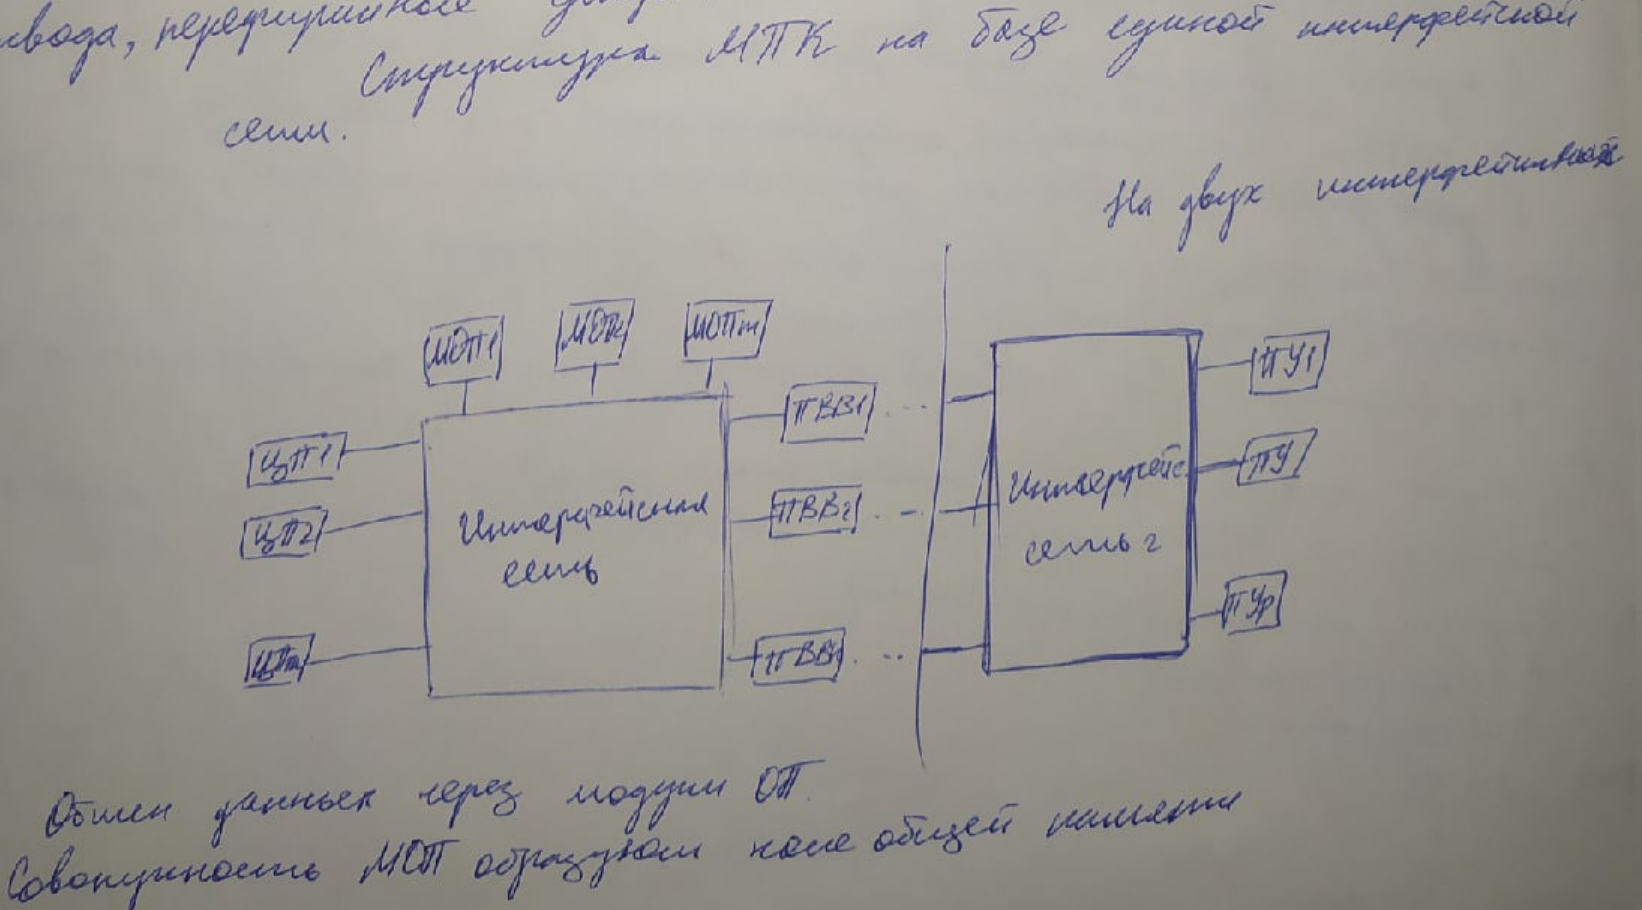 ввода, переферийное
Структура МПК на базе единой интерфейсной
сети.
На двух интерфейсных
МОП1 МОП2 МОПm
ПВВ1 ПУ1
ЦП1
Интерфейсная Интерфейс. ПУ
ЦП2 ПВВ2
сеть сеть 2
ПУр
ЦПn ПВВ
Обмен данных через модули ОП.
Совокупность МОП образуют поле общей памяти